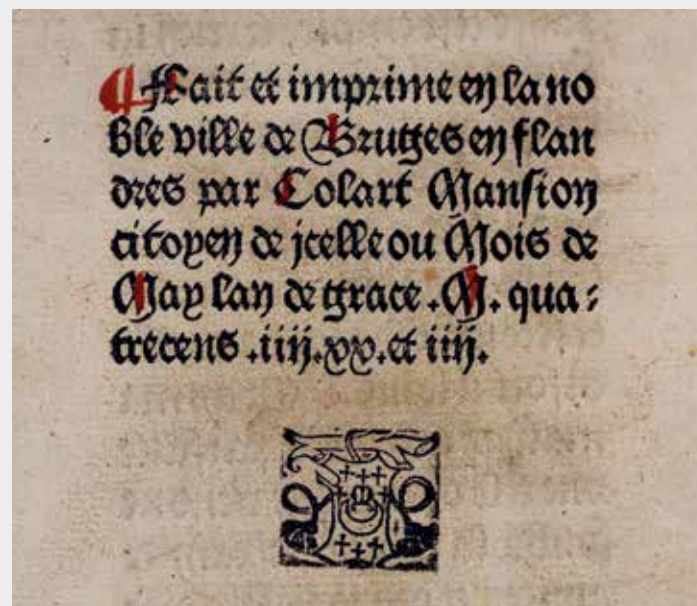 ¶ Fait et imprime en la no
ble ville de Bruges en flan
dres par Colart Mansion
citoyen de jcelle ou Mois de
May lan de grace .M. qua⸗
trecens .iiij.xx.et iiij.